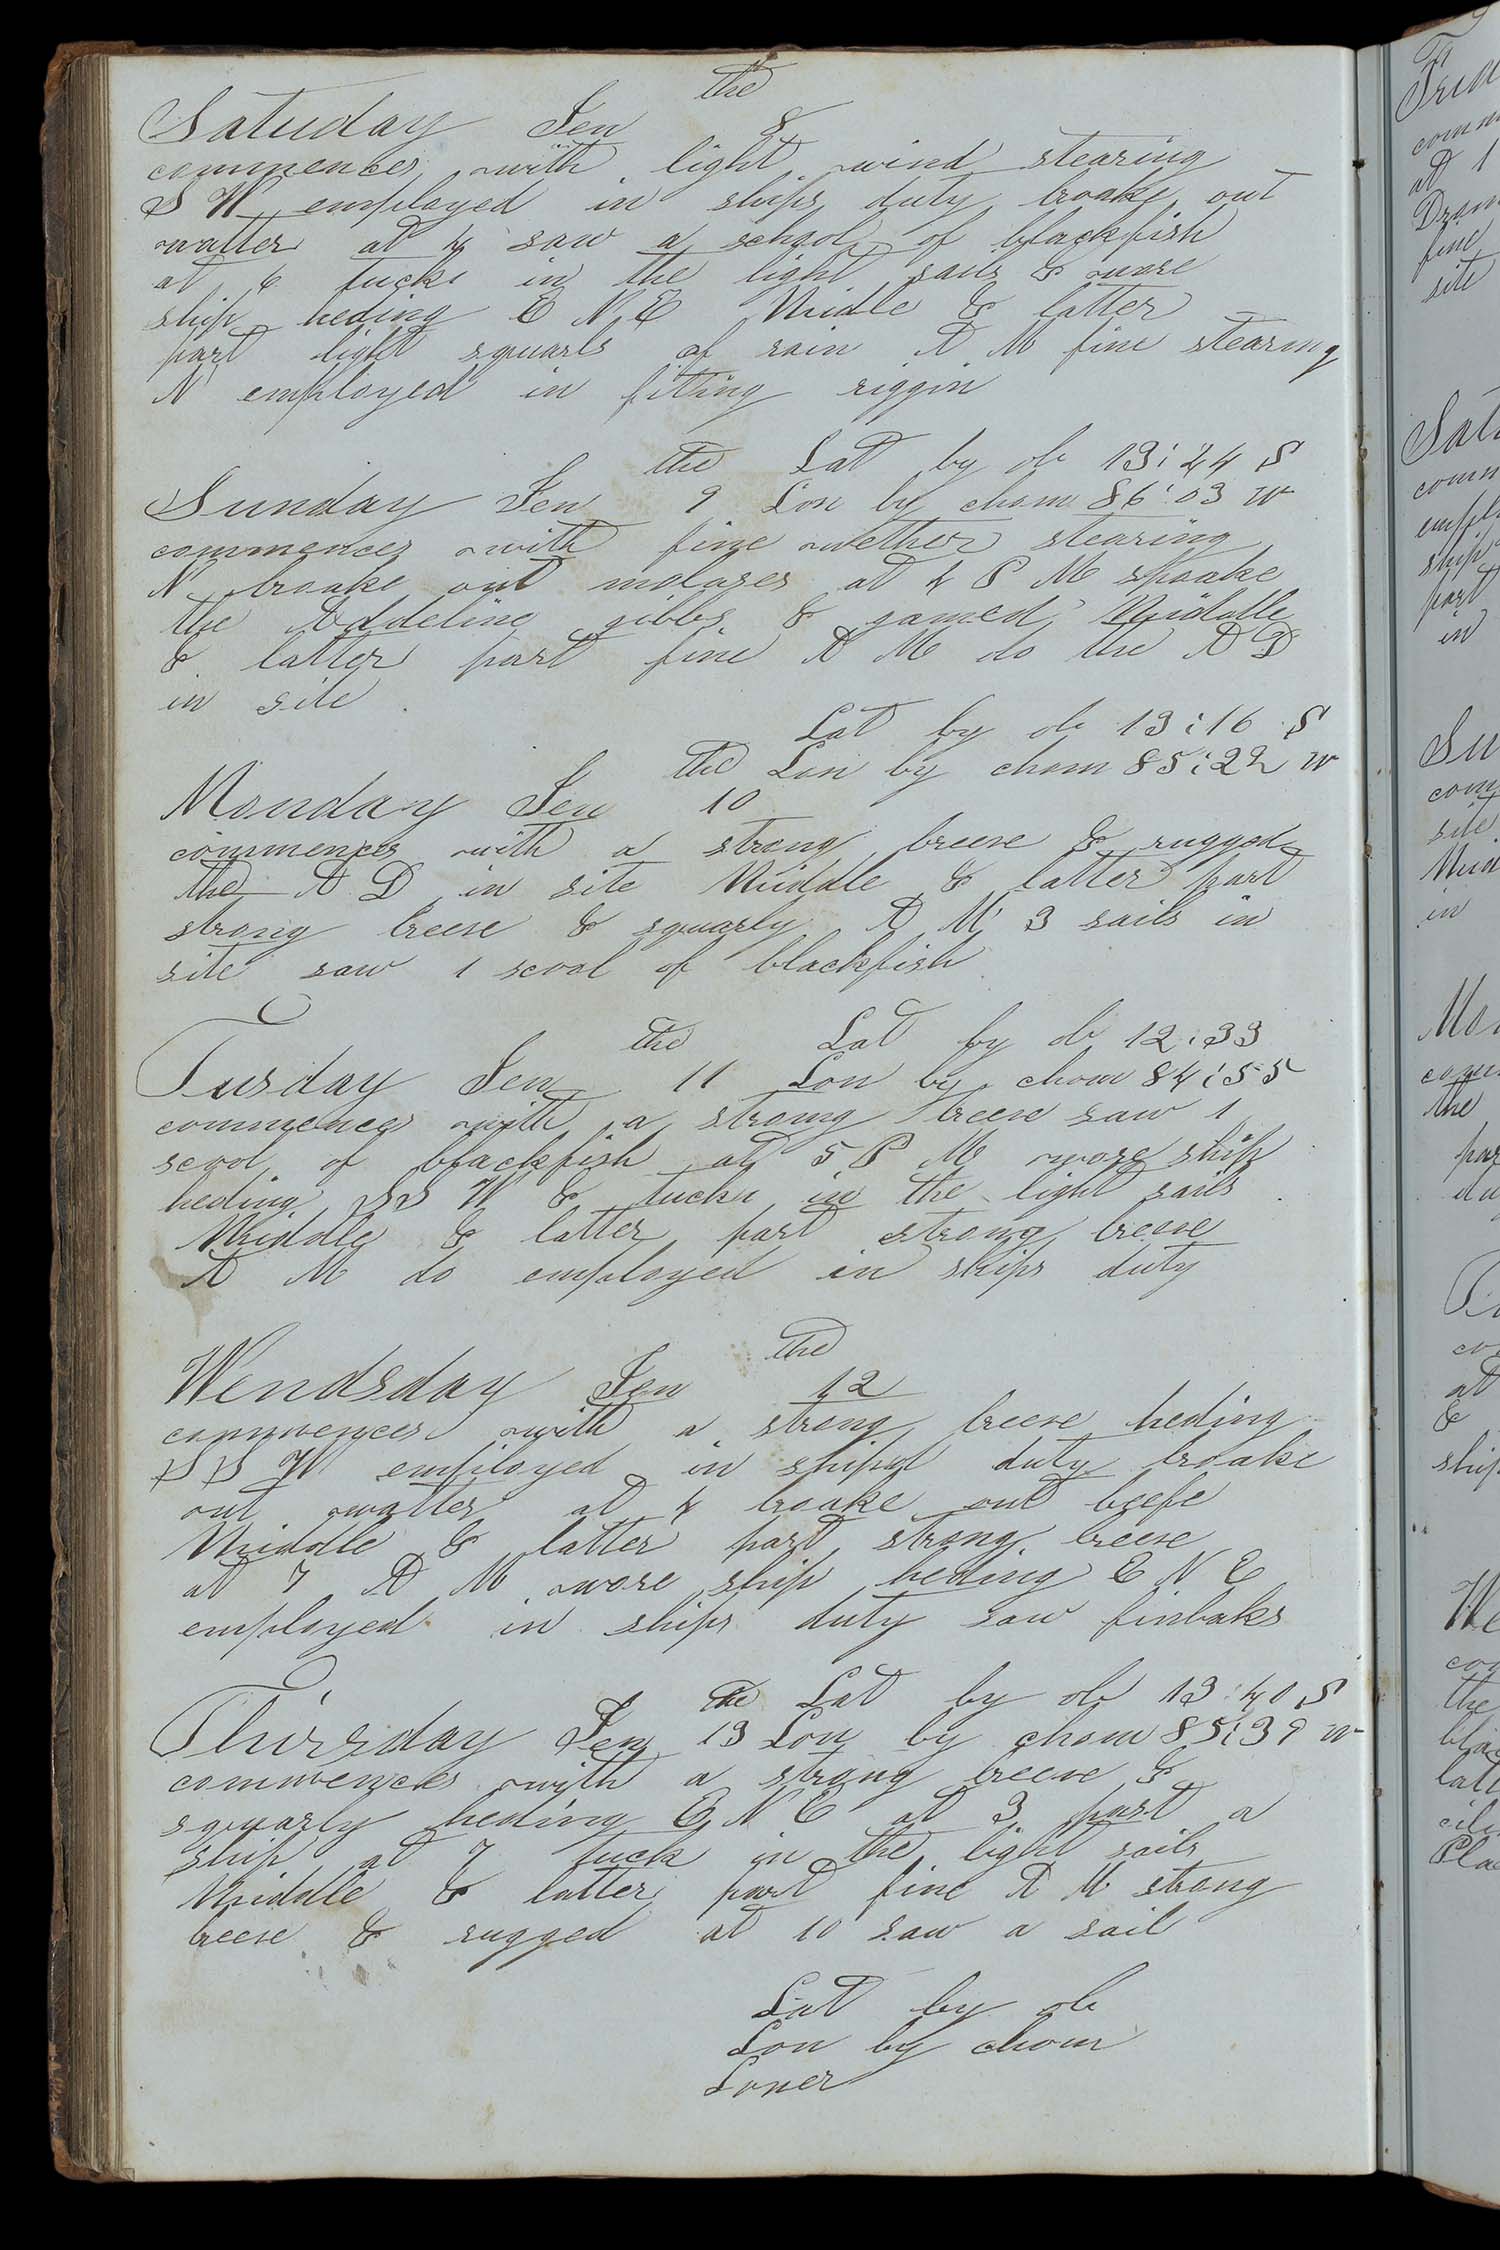 the
Satuday Jen 8
commences with light wind stearing
S W employed in ships duty broake out
watter at 4 saw a school of blackfish
at 6 tucke in the light sails & wore
ship heding E N E Midle & latter
part light squarls of rain A M fine stearing
N employed in fitting riggin
the Lat by ob 13:24 S
Sunday Jen 9 Lon by chom 86:03 W
commences with fine wether stearing
N broake out molases at 4 P M spoake
the Addeline gibbs & gamed Middle
& latter part fine A M do the A D
in site
Lat by ob 13:16 S
the Lon by chom 85:22 W
Monday Jen 10
commences with a strong breese & rugged
the A D in site Middle & latter part
strong breese & squarly A M 3 sails in
site saw 1 scool of blackfish
the Lat by ob 12:33
Tusday Jen 11 Lon by chom 84:55
commences with a strong breese saw 1
scool of blackfish at 5 P M wore ship
heding S S W & tucke in the light sails
Middle & latter part strong breese
A M do employed in ships duty
the
Wendsday Jen 12
commences with a strong breese heding
S S W employed in ships duty broake
out watter at 4 broake out beefe
Middle & latter part strong breese
at 7 A M wore ship heding E N E
employed in ships duty saw finbaks
the Lat by ob 13:40 S
Thirsday Jen 13 Lon by chom 85:39 W
commences with a strong breese &
squarly heding E N E at 3 part a
ship at 7 tuck in the light sails
Middle & latter part fine A M strong
breese & rugged at 10 saw a sail
Lat by ob
Lon by chom
Loner
Frid
comm
at 1
fine
site
Satu
comm
empl
ship
part
in
Su
com
site
Mid
in
Mon
the
par
at
&
ship
We
the
bla
latt